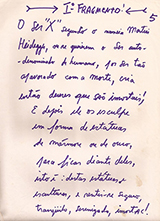 → Iº FRAGMENTO! ←
5
O Ser "X" segundo o nazista Martin
Heidegger, ou se quiserem o Ser auto-
denominado de humano, por ser tão
apavorado com a morte, cria
então deuses que são imortais!
E depois ele os esculpe
em forma de estátuas
de mármore ou de ouro,
para ficar diante deles,
isto é: destas estátuas, e
esculturas, e sentir-se seguro,
tranqüilo, serenizado, imortal!